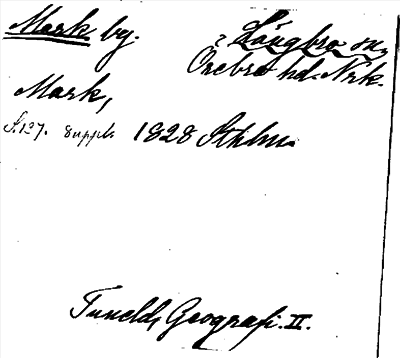 Mark by. i Längbro sn,
Örebro hd. Nrk.
Mark,
S. 127. suppl. 1828 Sthlm.
Tunelds Geografi. II.